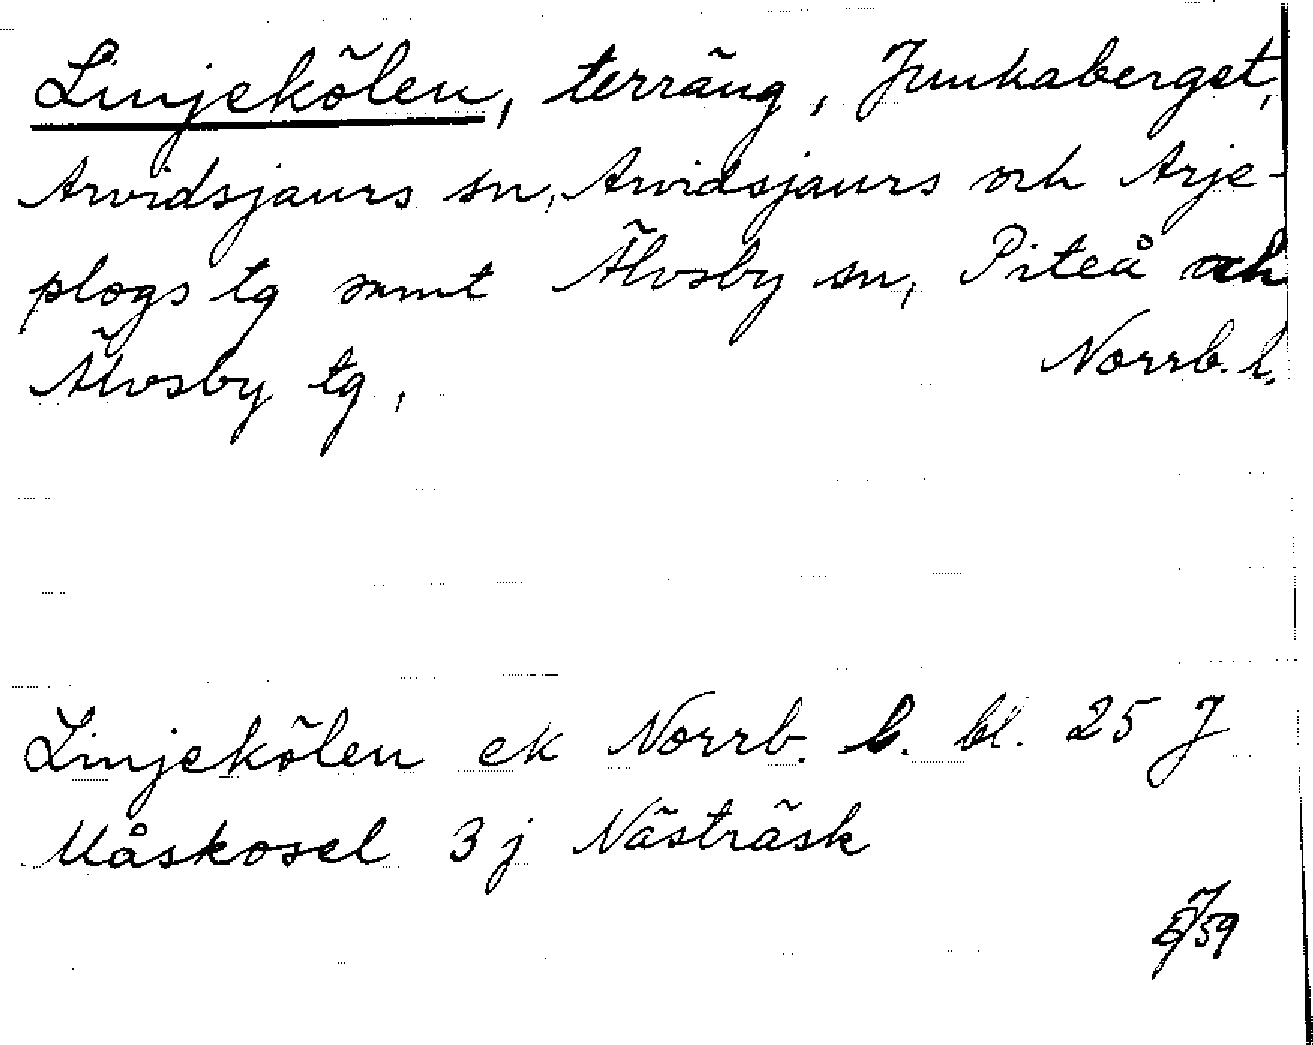 Linjekölen, terräng, Junkaberget,
Arvidsjaurs sn, Arvidsjaurs och Arje-
plogs tg samt Älvsby sn, Piteå och
Älvsby tg, Norrb. l.
Linjekölen ek Norrb. l. bl. 25 J
Måskosel 3j Nästräsk